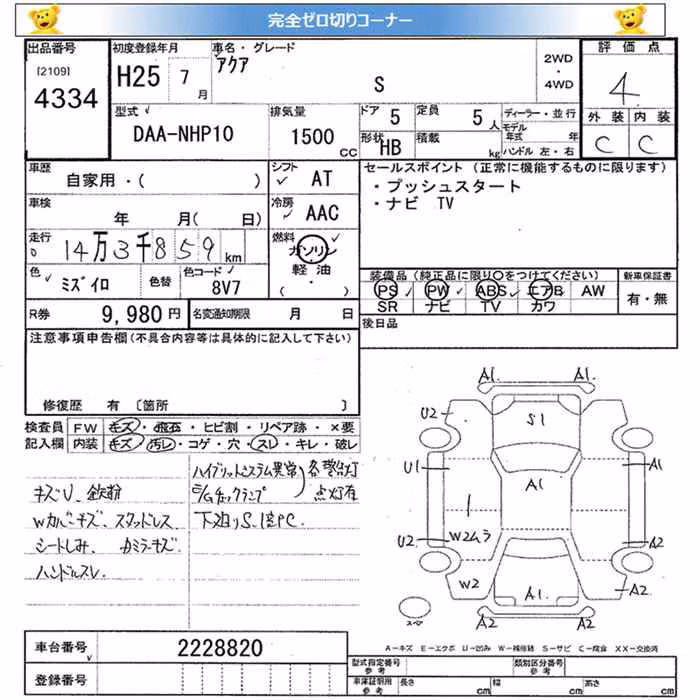 完全ゼロ切りコーナー
出品番号
[2109]
4334
初度登録年月
H25 7月
車名・グレード
アクア
S
2WD
・
4WD
評価点
4
外装 内装
C C
型式
DAA-NHP10
排気量
1500 CC
ドア 5
定員 5人
形状 HB
積載 kg
ディーラー・並行
モデル年式 年
ハンドル 左・右
車歴
自家用・( )
シフト AT
車検
年 月( 日)
冷房 AAC
走行
14万3千859km
燃料
ガソリン
軽油
( )
色
ミズイロ
色替
色コード
8V7
R券 9,980円
名変通知期限 月 日
セールスポイント (正常に機能するものに限ります)
・プッシュスタート
・ナビ TV
装備品(純正品に限り○をつけてください)
PS PW ABS エアB AW
SR ナビ TV カワ
新車保証書
有・無
後日品
注意事項申告欄(不具合内容等は具体的に記入して下さい)
修復歴 有 〔箇所 〕
検査員記入欄
FW キズ・飛石・ヒビ割・リペア跡・×要
内装 キズ・汚レ・コゲ・穴・スレ・キレ・破レ
キズU、鉄粉
Wカバーキズ、スタッドレス
シートしみ、カミラーキズ
ハンドルスレ
ハイブリットシステム異常
E/Gチェックランプ
各警告灯
点灯有
下廻りS、
A1
U2
S1
U1
A1
A1
1
U2
W2ムラ
A2
W2
A1
A2
A2
A2
スペア
A-キズ E-エクボ U-凹み W-補修跡 S-サビ C-腐食 XX-交換済
車台番号
2228820
登録番号
型式指定番号
参考
類別区分番号
参考
車庫証明用
参考
長さ cm
幅 cm
高さ cm